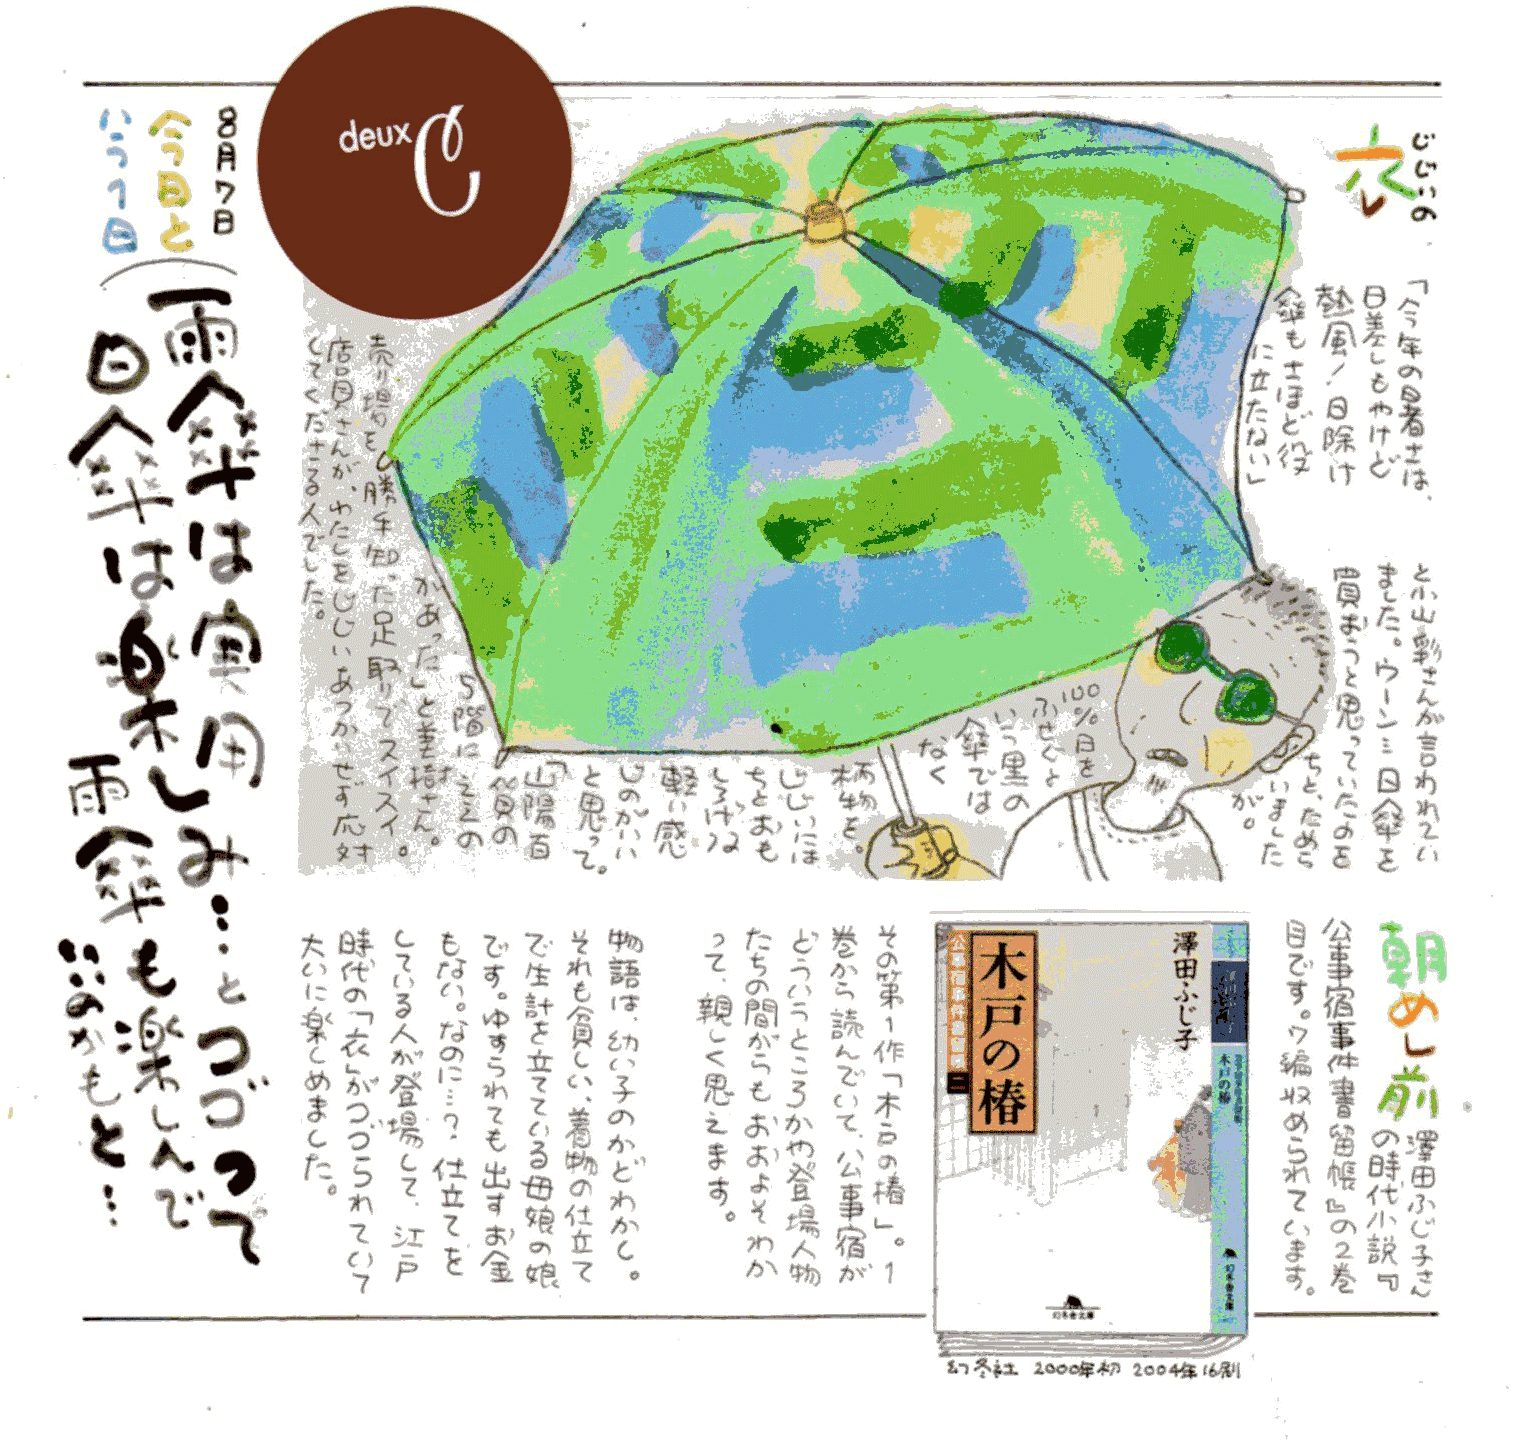 じじいの
衣
「今年の暑さは、
日差しもやけど
熱風！日除け
傘もさほど役
に立たない」
と小山彩さんが言われてい
ました。ウーン…日傘を
買おっと思っていたのを
ちと、ためら
いました
が。
100%日を
ふせぐと
いう黒の
傘では
なく
柄物を。
じじいには
ちとおも
しろげな
軽い感
じのがいい
と思って。
「山陽百
貨の
5階にええの
があった」と
売り場を勝手知った足取りでスイスイ。
店員さんが、わたしをじじいあつかいせず応対
してくださる人でした。
8月7日
今日と
いう日
雨傘は実用
日傘は楽しみ…とつづって
雨傘も楽しんで
いいのかもと…
朝めし前
澤田ふじ子さん
の時代小説『
公事宿事件書留帳』の2巻
目です。7編収められています。
その第1作「木戸の椿」。1
巻から読んでいて、公事宿が
どういうところかや登場人物
たちの間がらもおおよそわか
って、親しく思えます。
物語は、幼い子のかどわかし。
それも貧しい、着物の仕立て
で生計を立てている母娘の娘
です。ゆすられても出すお金
もない。なのに…？仕立てを
している人が登場して、江戸
時代の「衣」がつづられていて
大いに楽しめました。
澤田ふじ子
木戸の椿
公事宿事件書留帳 二
木戸の椿
幻冬舎文庫
幻冬舎文庫
幻冬社 2000年初 2004年16刷
deux C